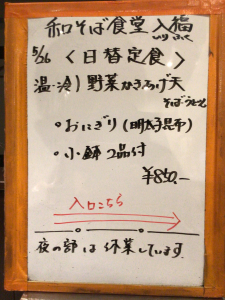 和そば食堂 入福
いり ふく
5/26 〈日替定食〉
温・冷) 野菜かきあげ天
そば・うどん
・おにぎり (明太子昆布)
・小鉢 2品付
¥850.-
入口こちら
夜の部は休業しています